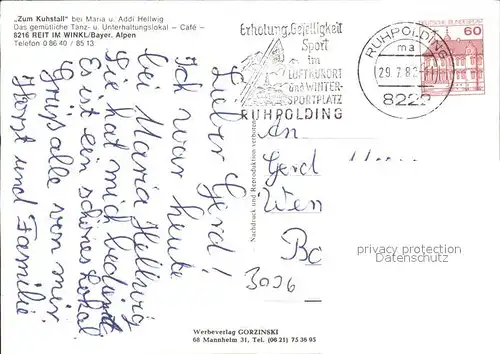 "Zum Kuhstall" bei Maria u. Addi Hellwig
Das gemütliche Tanz- u. Unterhaltungslokal – Café –
8216 REIT IM WINKL/Bayer. Alpen
Telefon 0 86 40 / 85 13
Erholung, Geselligkeit
Sport
im
LUFTKURORT
und WINTER-
SPORTPLATZ
RUHPOLDING
RUHPOLDING
ma
29.7.82
8222
DEUTSCHE BUNDESPOST
60
Lieber Gerd!
Ich war heute
bei Maria Hellwig
Sie hat mich bedient
Es ist ein schönes Lokal
Grüß alle von mir.
Horst und Familie
An
Gerd
Wen
Bo
3006
privacy protection
Ansichtskartenversand.com
Nachdruck und Reproduktion verboten
Werbeverlag GORZINSKI
68 Mannheim 31, Tel. (06 21) 75 36 95